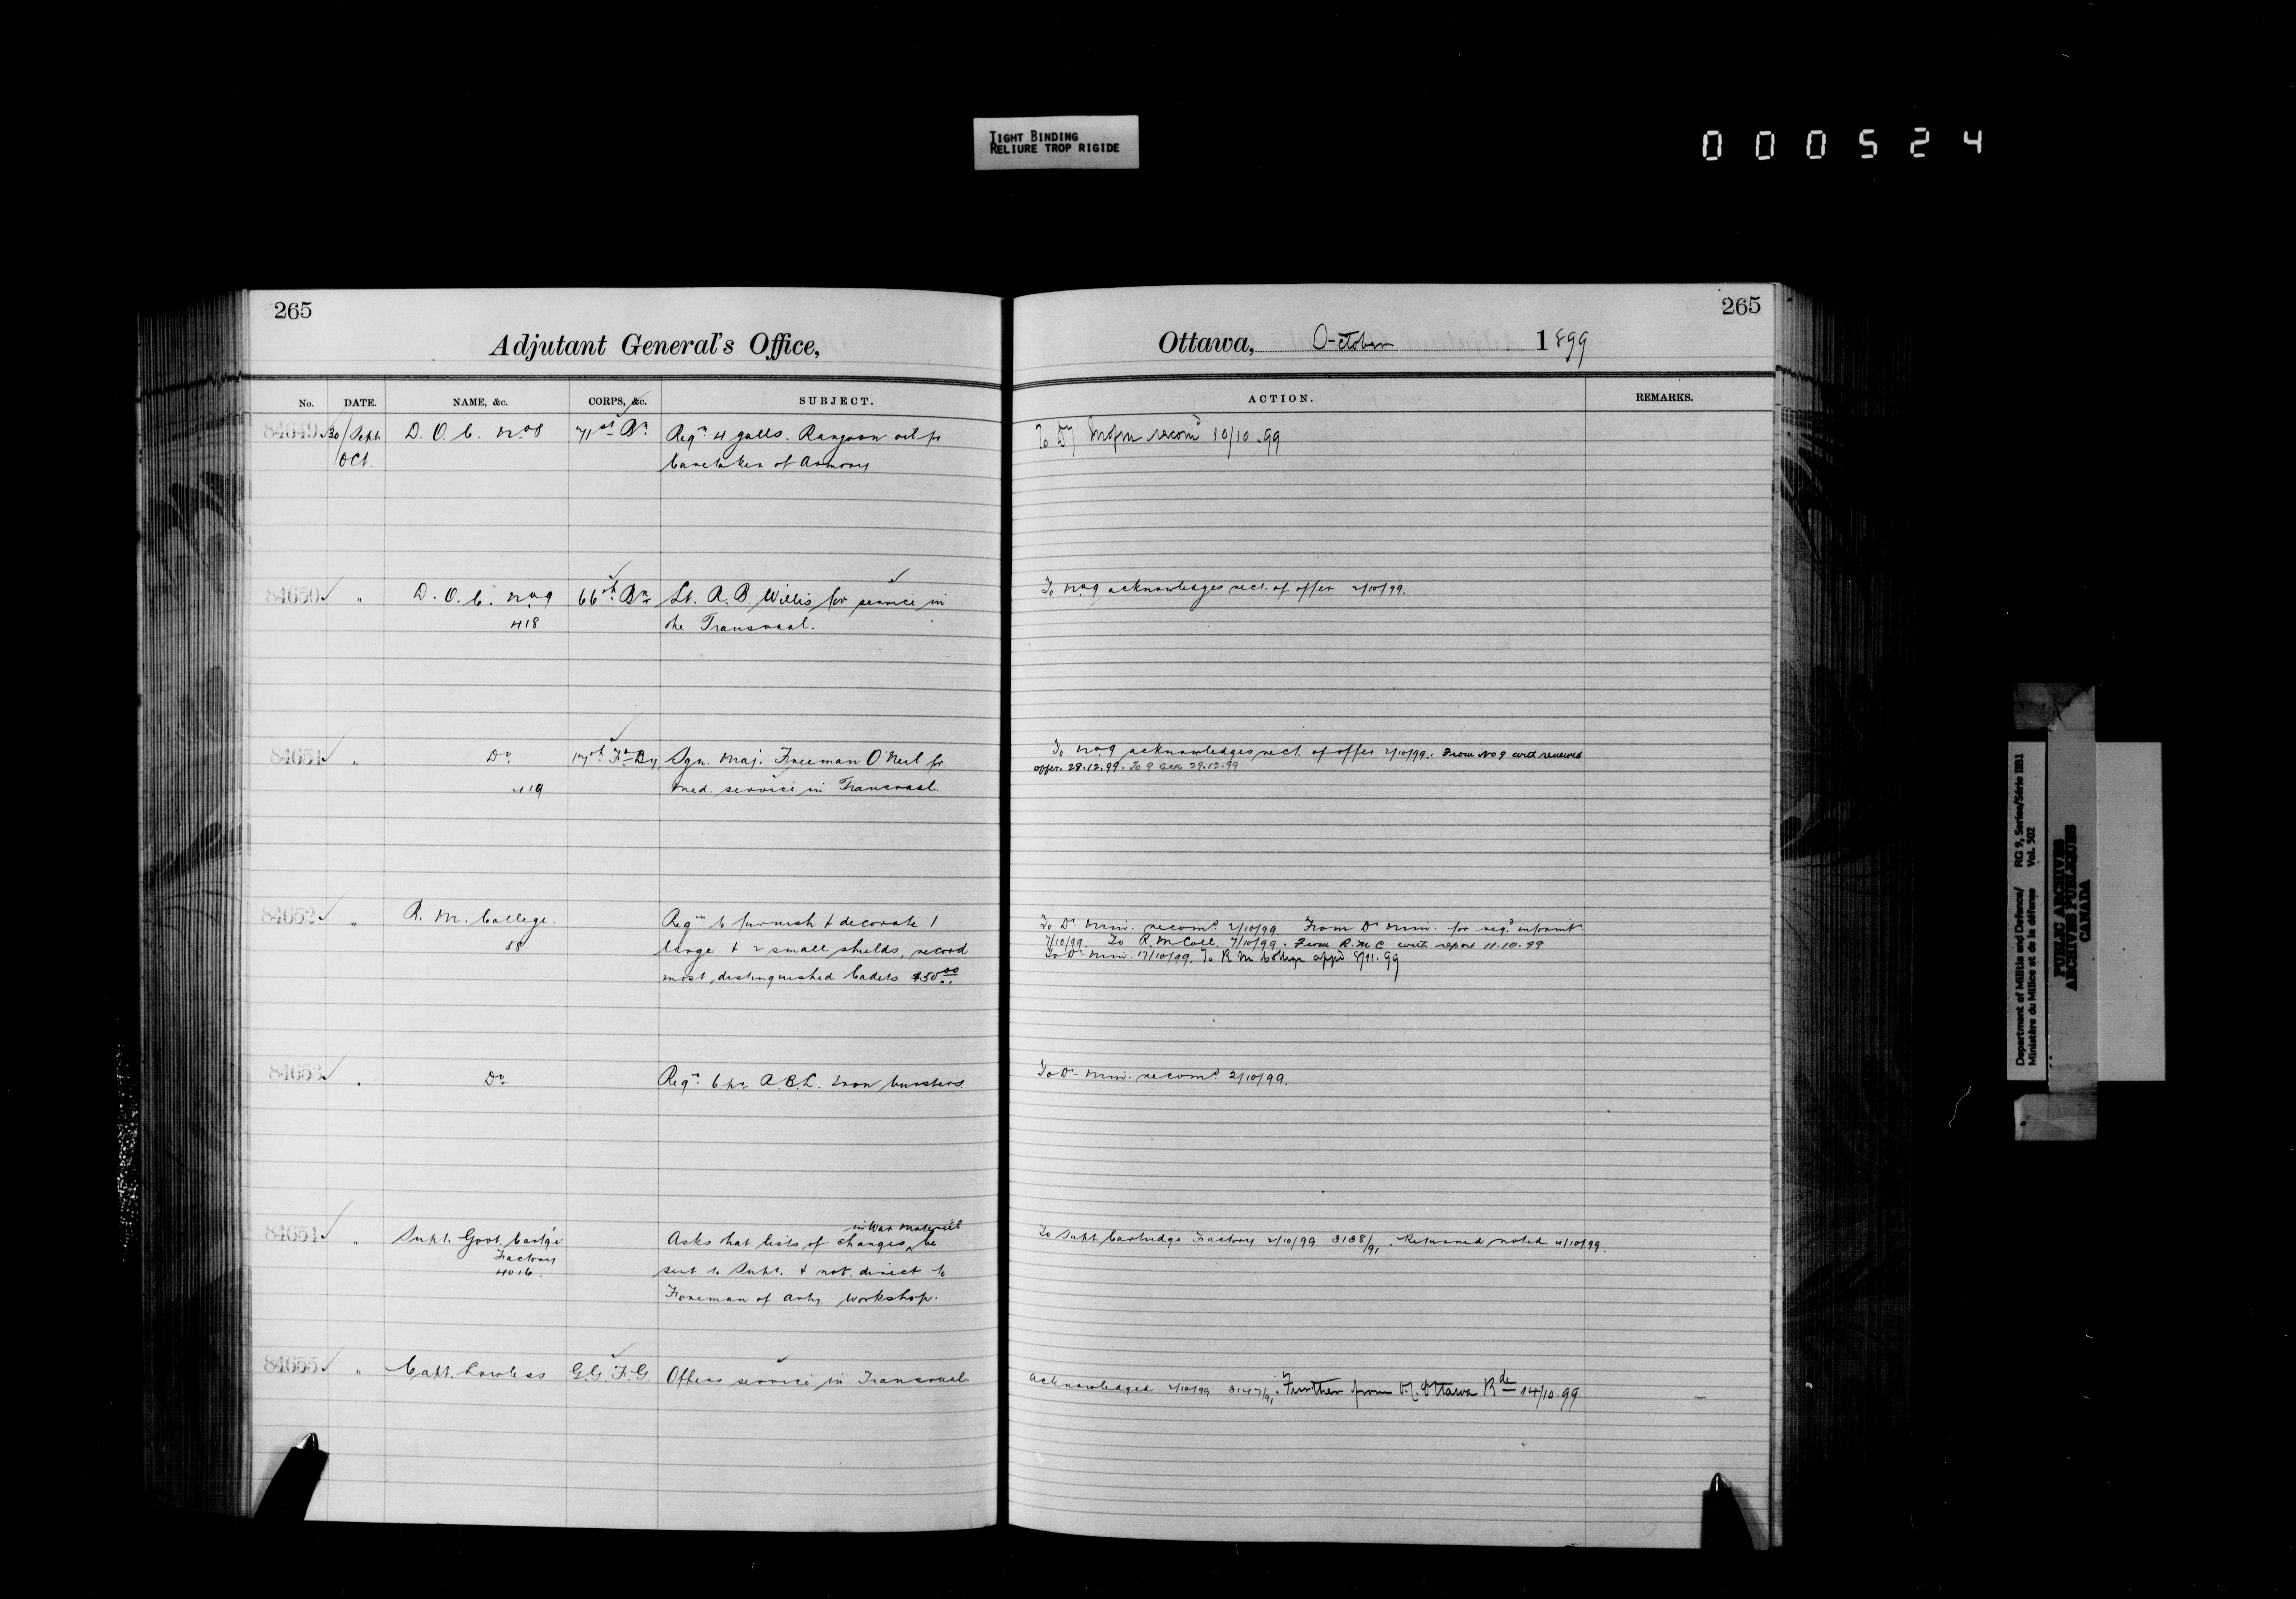 TIGHT BINDING
RELIURE TROP RIGIDE
000524
265
Adjutant General's Office,
No. DATE. NAME, &c. CORPS, &c. SUBJECT.
84649 30/Sept. D. O. C. No 8 71st Bn Reqn 4 galls. Rangoon oil for
Oct. Caretaker of Armory
84650 " D. O. C. No 9 66th Bn Lt. R. B. Willis for service in
418 the Transvaal.
84651 " Do 17th Fd By Sgn. Maj. Freeman O'Neil for
419 med. service in Transvaal.
84652 " R. M. College. Reqn to furnish & decorate 1
58 large & 2 small shields, record
most distinguished Cadets $50.00
84653 " Do Reqn 6 hr. Iron
84654 " Supt. Govt. Cart'ge Asks that lists of changes in War Material be
Factory
4016. sent to Supt. & not direct to
Foreman of Arty Workshop.
84655 " Capt. Lawless G.G.F.G. Offers service in Transvaal
265
Ottawa, October 1899
ACTION. REMARKS.
To Dy recomd 10/10.99
To No 9 acknowledges rect. of offer 2/10/99.
To No 9 acknowledges rect. of offer 2/10/99. From No 9 with renewed
offer. 28.12.99. To 9 Ack 29.12.99
To Dr Min. recomd 2/10/99 From Dr Min. for reqd informt
7/10/99. To R. M Coll. 7/10/99. From R.M C with report 11.10.99
To Dr Min. 17/10/99. To R M College appd 8/11.99
To Dr Min. recomd 2/10/99.
To Supt Cartridge Factory 2/10/99 3138/91. Returned noted 4/10/99.
Acknowledged 2/10/99 3147/91. Further from Ottawa Rde 14/10.99
Department of Militia and Defence/ RG 9, Series/Série IIB1
Ministère du Milice et de la défense Vol. 502
PUBLIC ARCHIVES
ARCHIVES PUBLIQUES
CANADA